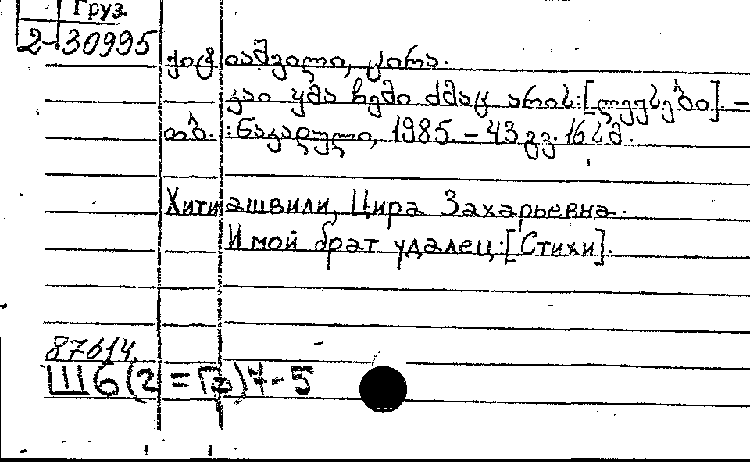 Груз.
2-30995
ქიტიაშვილი, ცირა.
კაი ყმა ჩემი ძმაც არის: [ლექსები]. –
თბ.: ნაკადული, 1985. – 43 გვ. 16 სმ.
Хитиашвили, Цира Захарьевна.
И мой брат удалец: [Стихи].
87614.
Ш6(2=Гр)7-5